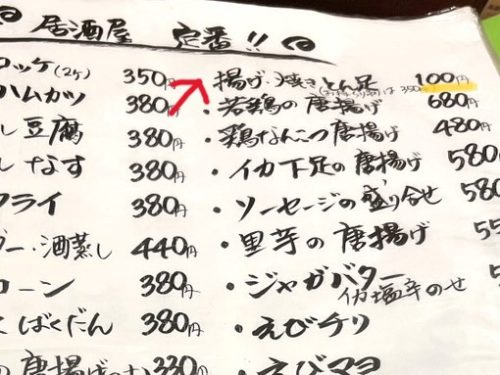 居酒屋 定番!!
ロッケ(2ヶ) 350円
ハムカツ 380円
し豆腐 380円
しなす 380円
フライ 380円
ー・酒蒸し 440円
コーン 380円
ばくだん 380円
の唐揚げ 330円
揚げ・焼きとん足 100円
・若鶏の唐揚げ 680円
・鶏なんこつ唐揚げ 480円
・イカ下足の唐揚げ 580
・ソーセージの盛り合せ 580
・里芋の唐揚げ 55
・ジャガバター
イカ塩辛のせ
・えびチリ
・えびマヨ